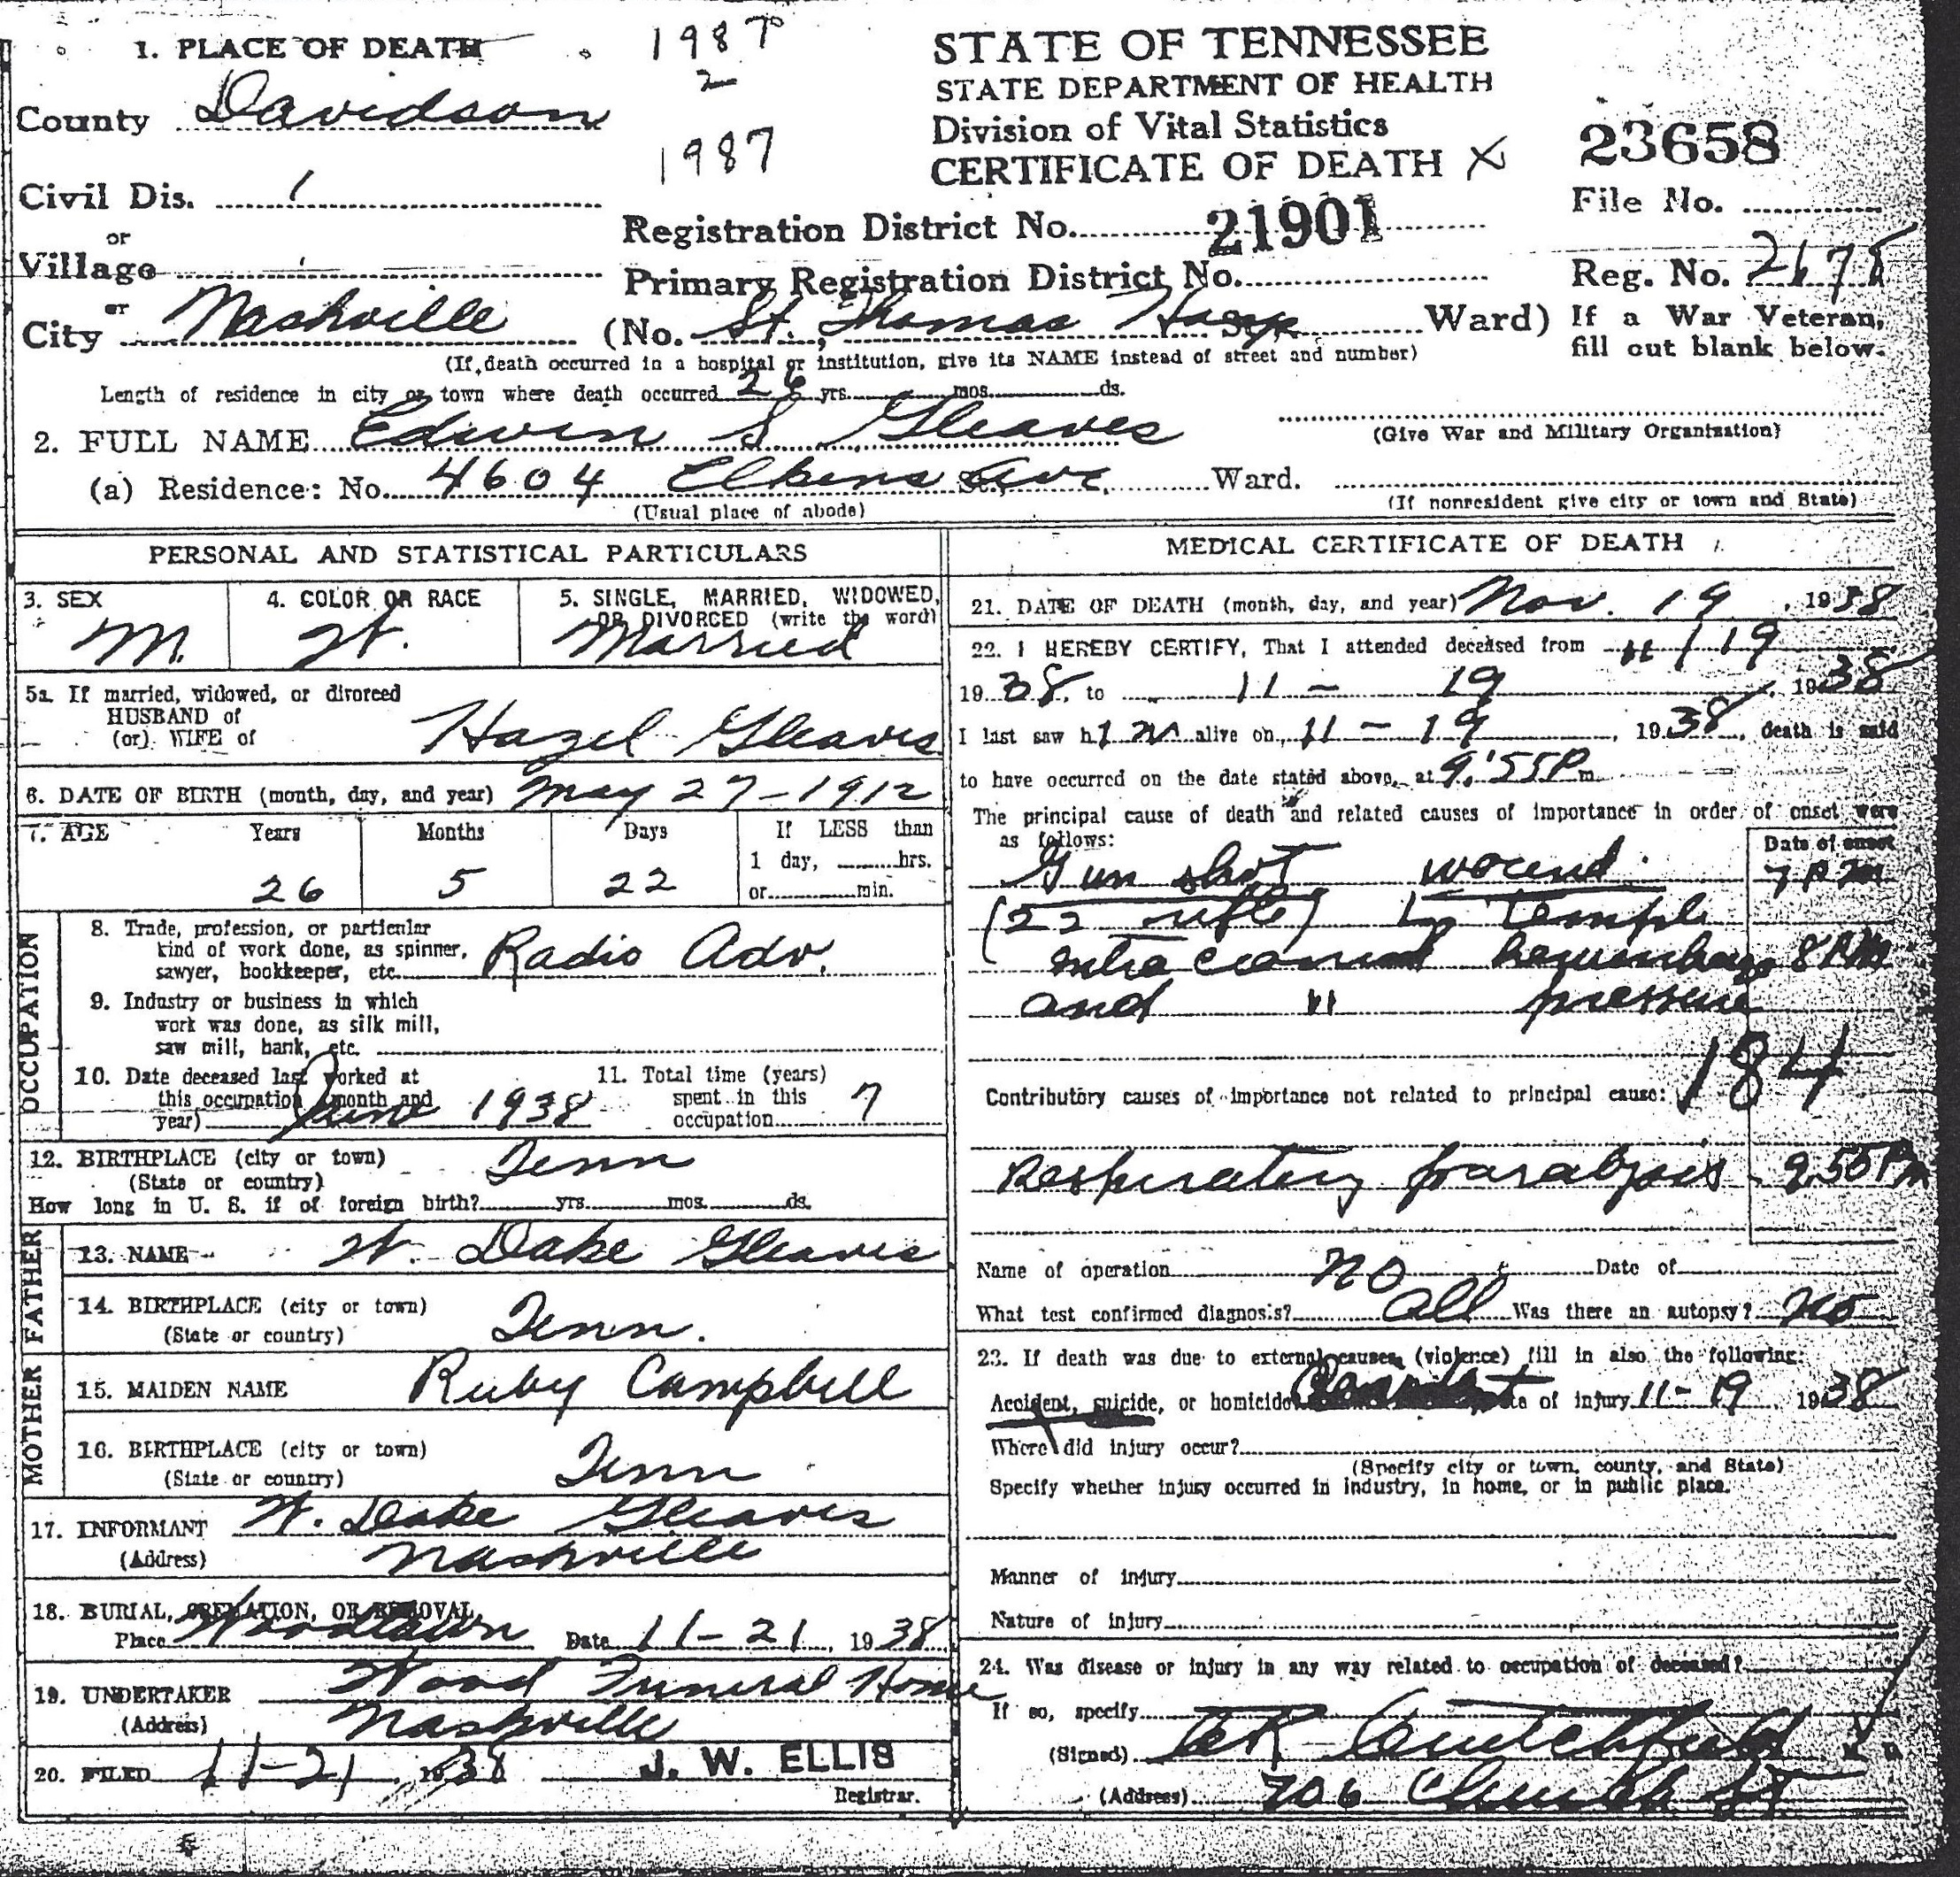 1. PLACE OF DEATH
1987
2
1987
County Davidson
Civil Dis. 1
or
Village
or
City Nashville
STATE OF TENNESSEE
STATE DEPARTMENT OF HEALTH
Division of Vital Statistics
CERTIFICATE OF DEATH X
Registration District No. 21901
Primary Registration District No.
(No. St. Thomas Hosp St., Ward)
(If death occurred in a hospital or institution, give its NAME instead of street and number)
23658
File No.
Reg. No. 2675
If a War Veteran,
fill out blank below.
Length of residence in city or town where death occurred 26 yrs. mos. ds.
2. FULL NAME Edwin S Gleaves
(Give War and Military Organization)
(a) Residence: No. 4604 Elkins Ave. St., Ward.
(Usual place of abode)
(If nonresident give city or town and State)
PERSONAL AND STATISTICAL PARTICULARS
3. SEX
M.
4. COLOR OR RACE
W.
5. SINGLE, MARRIED, WIDOWED,
OR DIVORCED (write the word)
Married
5a. If married, widowed, or divorced
HUSBAND of
(or) WIFE of
Hazel Gleaves
6. DATE OF BIRTH (month, day, and year) May 27-1912
7. AGE
Years
26
Months
5
Days
22
If LESS than
1 day, hrs.
or min.
OCCUPATION
8. Trade, profession, or particular
kind of work done, as spinner,
sawyer, bookkeeper, etc. Radio Adv.
9. Industry or business in which
work was done, as silk mill,
saw mill, bank, etc.
10. Date deceased last worked at
this occupation (month and
year) June 1938
11. Total time (years)
spent in this
occupation 7
12. BIRTHPLACE (city or town) Tenn
(State or country)
How long in U. S. if of foreign birth? yrs. mos. ds.
FATHER
13. NAME W. Dake Gleaves
14. BIRTHPLACE (city or town)
(State or country) Tenn.
MOTHER
15. MAIDEN NAME Ruby Campbell
16. BIRTHPLACE (city or town)
(State or country) Tenn
17. INFORMANT W. Dake Gleaves
(Address) Nashville
18. BURIAL, CREMATION, OR REMOVAL
Place Woodlawn Date 11-21, 1938
19. UNDERTAKER Wood Funeral Home
(Address) Nashville
20. FILED 11-21, 1938 J. W. ELLIS
Registrar.
MEDICAL CERTIFICATE OF DEATH
21. DATE OF DEATH (month, day, and year) Nov. 19, 1938
22. I HEREBY CERTIFY, That I attended deceased from 11/19
1938, to 11-19, 1938
I last saw him alive on 11-19, 1938, death is said
to have occurred on the date stated above, at 9:55P m.
The principal cause of death and related causes of importance in order of onset were
as follows:
Date of onset
Gun shot wound 7 PM
(22 rifle) temple
intracranial hemorrhage 8 PM
and " pressure
184
Contributory causes of importance not related to principal cause:
Respiratory paralysis 955 Pm
Name of operation no Date of
What test confirmed diagnosis? all Was there an autopsy? no
23. If death was due to external causes (violence) fill in also the following:
Accident, suicide, or homicide Date of injury 11-19, 1938
Where did injury occur?
(Specify city or town, county, and State)
Specify whether injury occurred in industry, in home, or in public place.
Manner of injury
Nature of injury
24. Was disease or injury in any way related to occupation of deceased?
If so, specify
(Signed) Crutchfield
(Address) 706 Church St